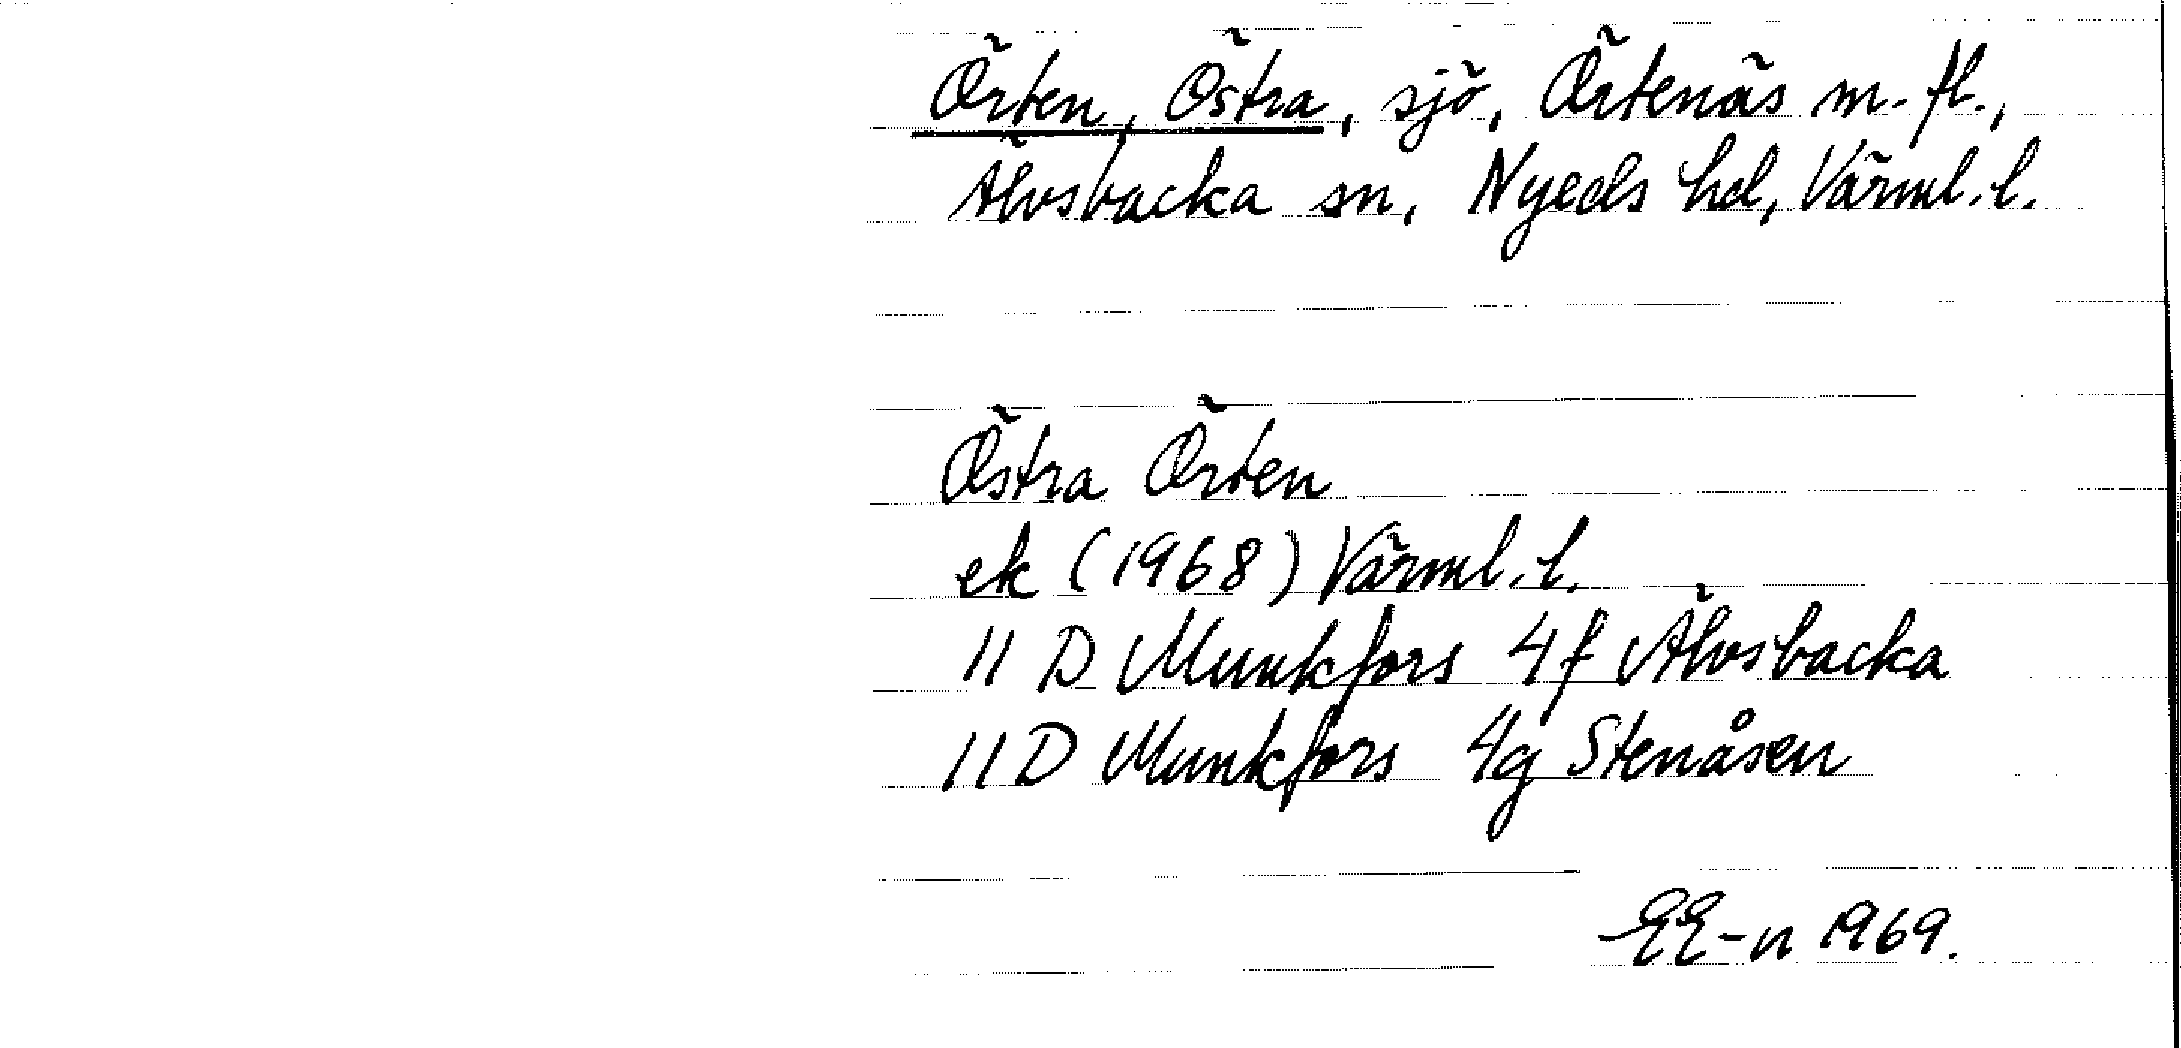 Örten, Östra, sjö, Örtenäs m. fl.,
Älvsbacka sn, Nyeds hd, Värml. l.
Östra Örten
ek (1968) Värml. l.
11 D Munkfors 4f Älvsbacka
11 D Munkfors 4g Stenåsen
EE-n 1969.